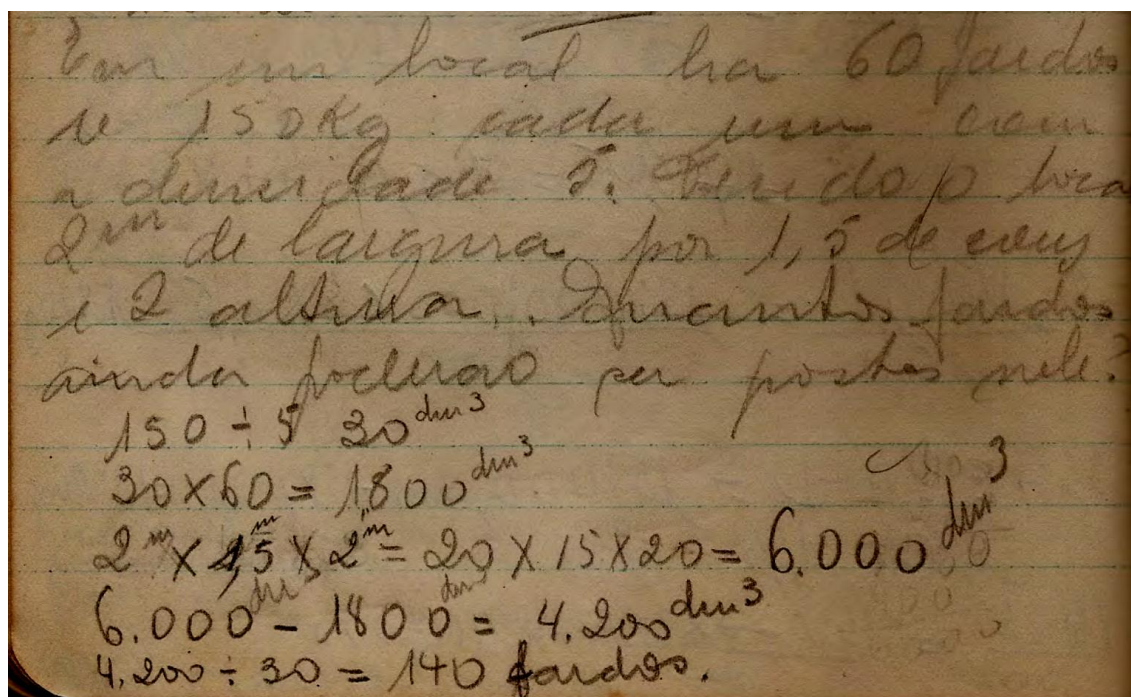 Em um local ha 60 fardos
de 150Kg cada um com
a densidade 5. Tendo o loca
2m de largura por 1,5 de comp
e 2 altura. Quantos fardos
ainda poderão ser postos nele?
150 ÷ 5 30 dm³
30 x 60 = 1800 dm³
2m x 1,5m x 2m = 20 x 15 x 20 = 6.000 dm³
6.000 dm³ - 1800 dm³ = 4.200 dm³
4.200 ÷ 30 = 140 fardos.